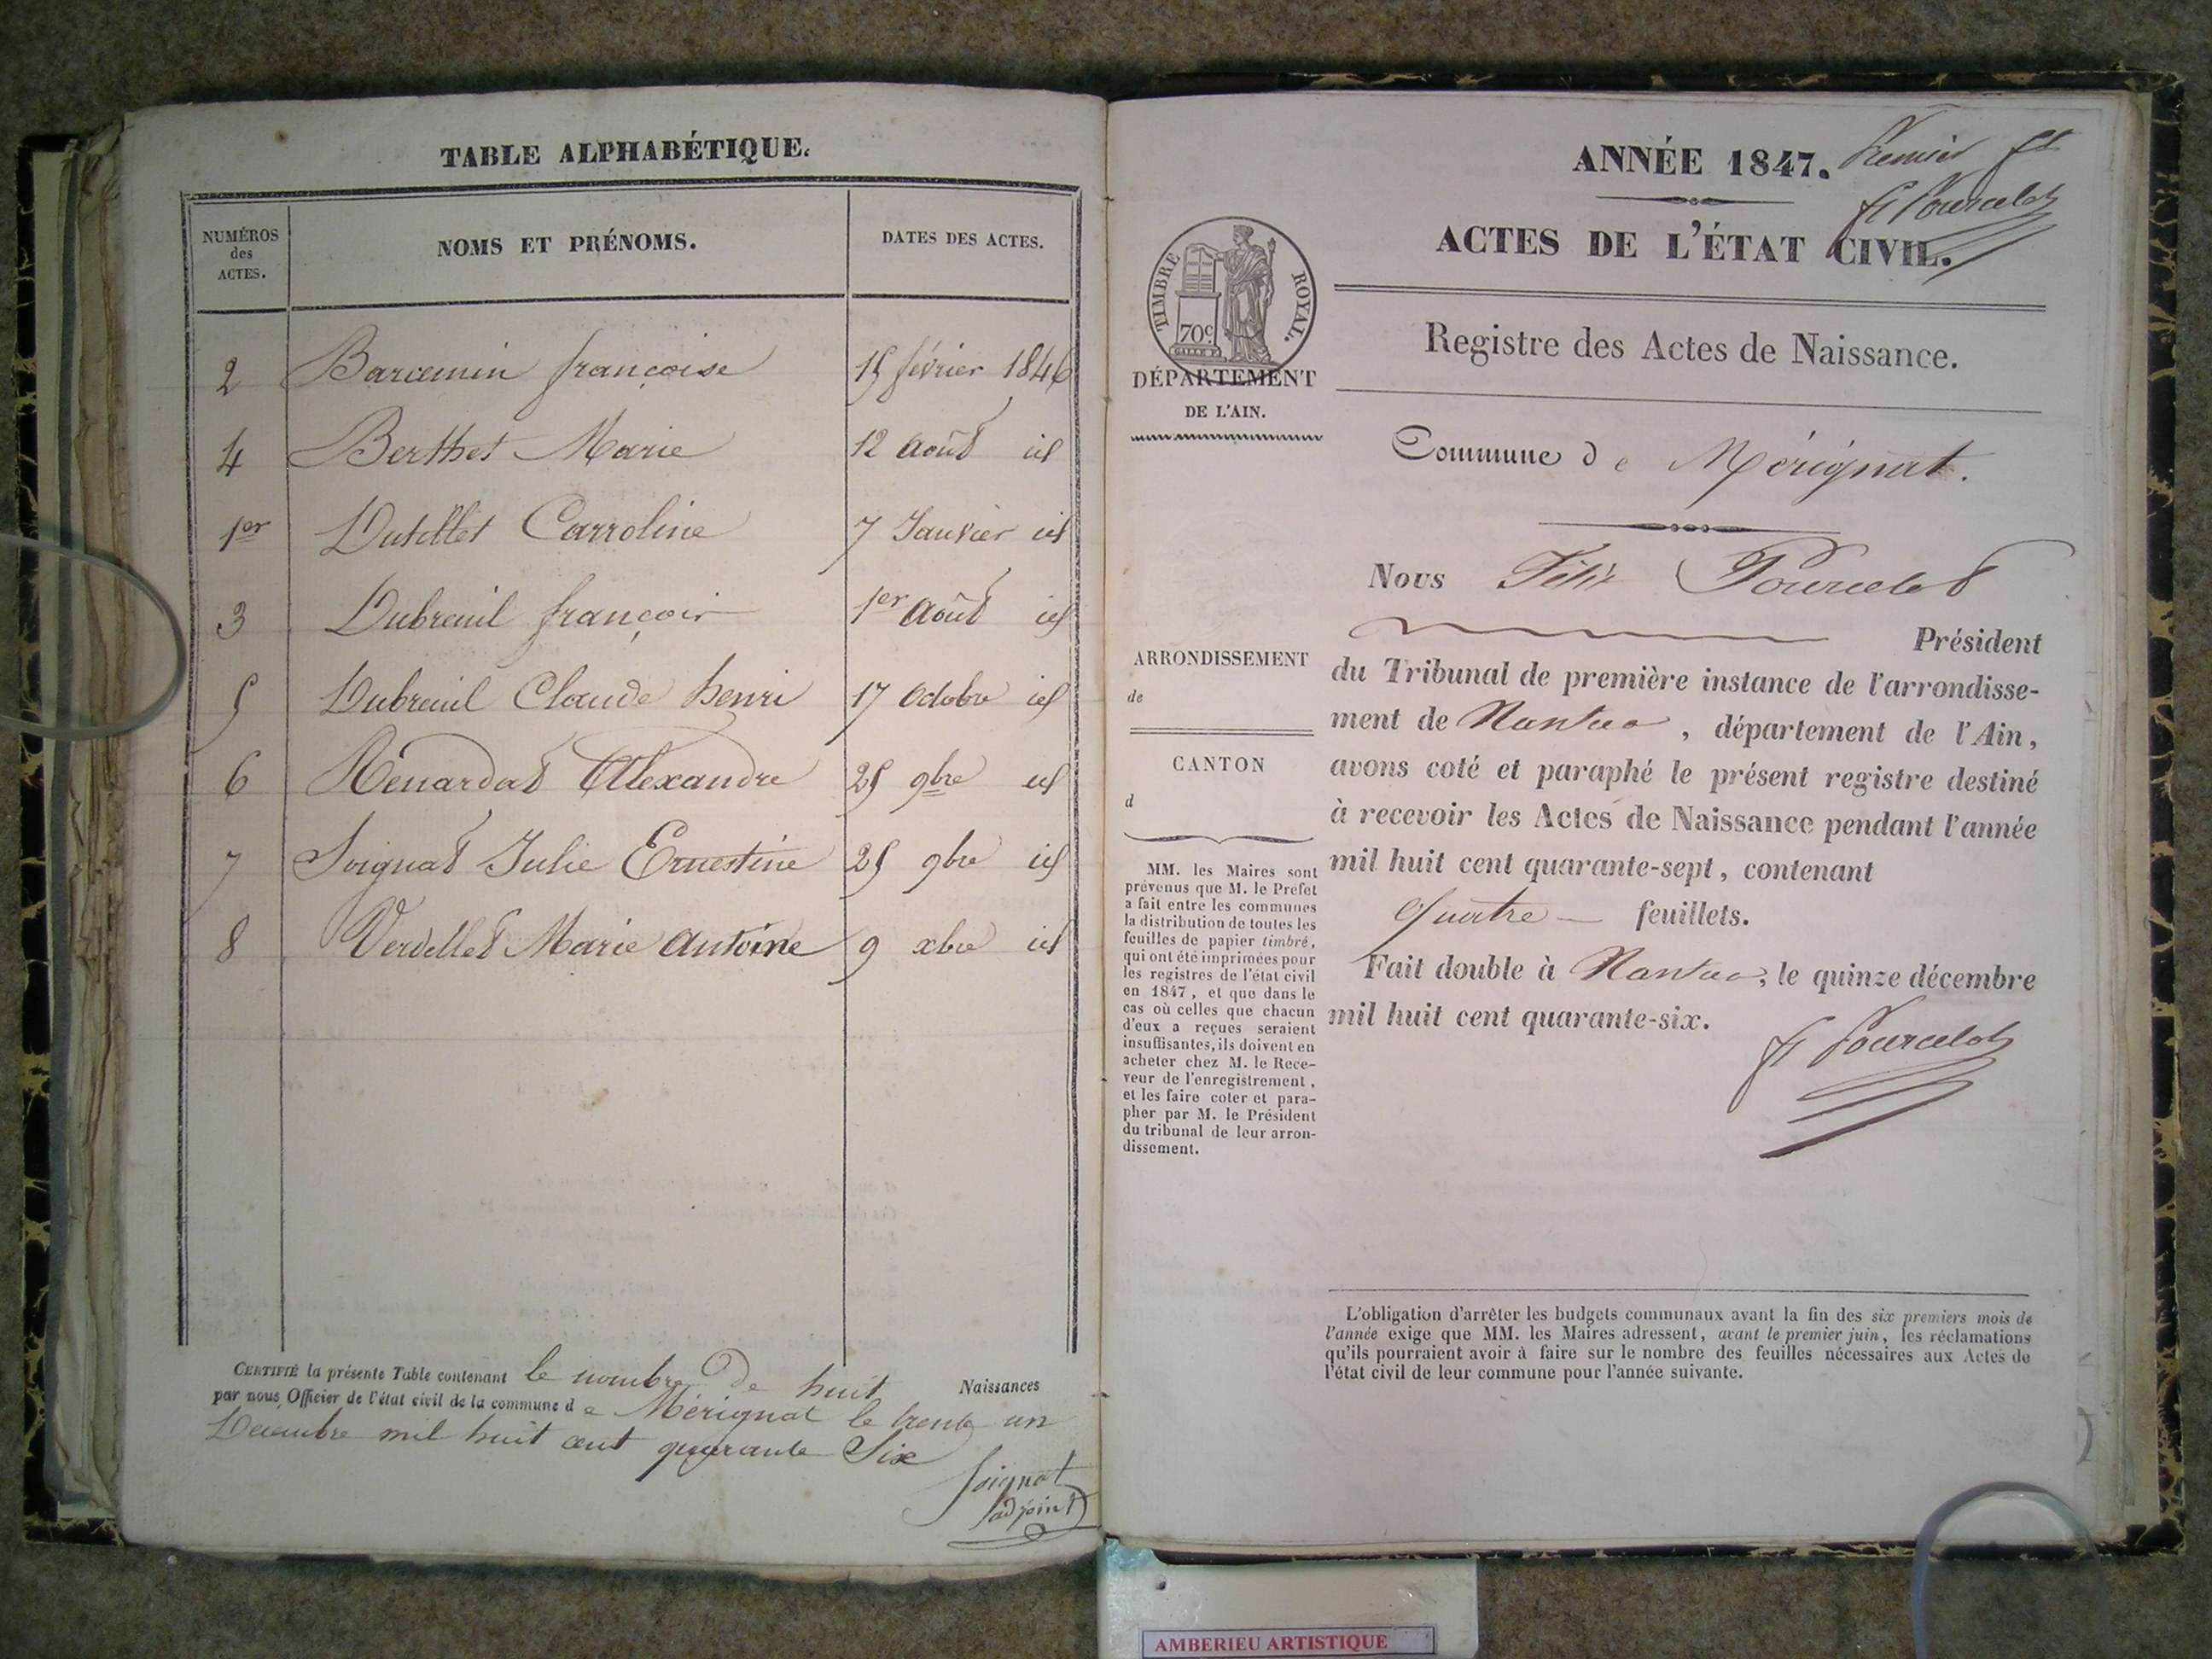 TABLE ALPHABÉTIQUE.
NUMÉROS
des
ACTES.
NOMS ET PRÉNOMS.
DATES DES ACTES.
2 Barcemin françoise 15 février 1846
4 Berthet Marie 12 Août id
1er Carroline 7 Janvier id
3 Dubreuil françois 1er Août id
5 Dubreuil Claude henri 17 Octobre id
6 Renardat Alexandre 25 9bre id
7 Soignat Julie Ernestine 25 9bre id
8 Verdellet Marie Antoine 9 xbre id
CERTIFIÉ la présente Table contenant le nombre De huit Naissances
par nous Officier de l'état civil de la commune d e Mérignat le trente un
Decembre mil huit cent quarante Six
Soignat
adjoint
ANNÉE 1847. Premier ft
F Pourcelot
ACTES DE L'ÉTAT CIVIL.
TIMBRE ROYAL.
70c
DÉPARTEMENT
DE L'AIN.
Registre des Actes de Naissance.
Commune d e Mérignat.
Nous Félix Pourcelot
Président
du Tribunal de première instance de l'arrondisse-
ment de Nantua, département de l'Ain,
avons coté et paraphé le présent registre destiné
à recevoir les Actes de Naissance pendant l'année
mil huit cent quarante-sept, contenant
Quatre feuillets.
Fait double à Nantua, le quinze décembre
mil huit cent quarante-six.
F Pourcelot
ARRONDISSEMENT
de
CANTON
d
MM. les Maires sont
prévenus que M. le Préfet
a fait entre les communes
la distribution de toutes les
feuilles de papier timbré,
qui ont été imprimées pour
les registres de l'état civil
en 1847, et que dans le
cas où celles que chacun
d'eux a reçues seraient
insuffisantes, ils doivent en
acheter chez M. le Rece-
veur de l'enregistrement,
et les faire coter et para-
pher par M. le Président
du tribunal de leur arron-
dissement.
L'obligation d'arrêter les budgets communaux avant la fin des six premiers mois de
l'année exige que MM. les Maires adressent, avant le premier juin, les réclamations
qu'ils pourraient avoir à faire sur le nombre des feuilles nécessaires aux Actes de
l'état civil de leur commune pour l'année suivante.
AMBERIEU ARTISTIQUE